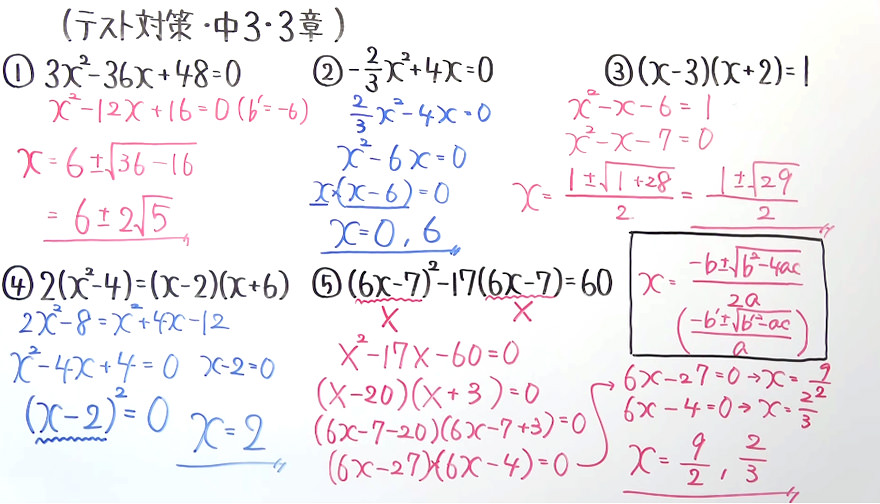 (テスト対策・中3・3章)
① 3x²-36x+48=0
x²-12x+16=0 (b'=-6)
x=6±√36-16
=6±2√5
② -2/3x²+4x=0
2/3x²-4x=0
x²-6x=0
x(x-6)=0
x=0,6
③ (x-3)(x+2)=1
x²-x-6=1
x²-x-7=0
x=1±√1+28/2=1±√29/2
x=-b±√b²-4ac/2a
(-b'±√b'²-ac/a)
④ 2(x²-4)=(x-2)(x+6)
2x²-8=x²+4x-12
x²-4x+4=0 x-2=0
(x-2)²=0
x=2
⑤ (6x-7)²-17(6x-7)=60
X X
X²-17X-60=0
(X-20)(X+3)=0
(6x-7-20)(6x-7+3)=0
(6x-27)(6x-4)=0
6x-27=0→x=9/2
6x-4=0→x=2/3
x=9/2,2/3